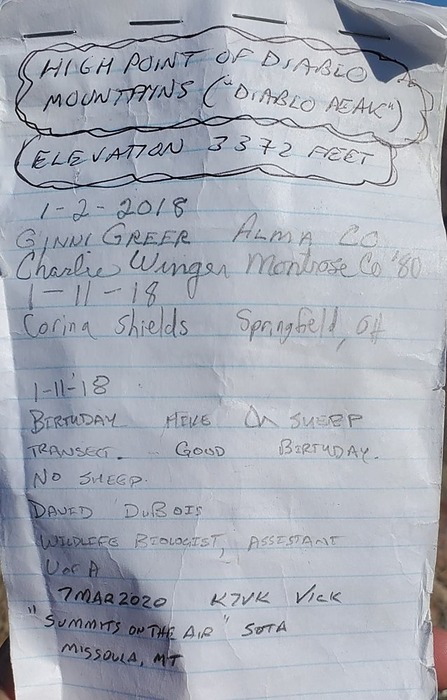 HIGH POINT OF DIABLO
MOUNTAINS ("DIABLO PEAK")
ELEVATION 3372 FEET
1-2-2018
GINNI GREER ALMA CO
Charlie Winger Montrose Co '80
1-11-18
Corina Shields Springfield, OH
1-11-18
BIRTHDAY HIKE ON SHEEP
TRANSECT. GOOD BIRTHDAY.
NO SHEEP.
DAVID DUBOIS
WILDLIFE BIOLOGIST, ASSISTANT
U OF A
7MAR2020 K7VK VICK
"SUMMITS ON THE AIR" SOTA
MISSOULA, MT